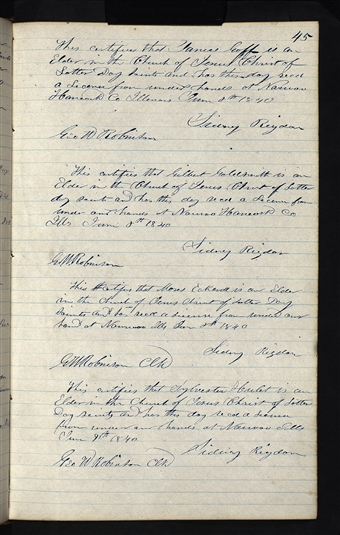 45
This certifies that James Goff is an
Elder in the Church of Jesus Christ of
Latter Day Saints and has this day recd
a License from under hands at Nauvoo
Hancock Co Illinois June 8th 1840
Sidney Rigdon
Geo W Robinson
This certifies that Gilbert Goldsmith is an
Elder in the Church of Jesus Christ of Latter
day saints and has this day recd a License from
under our hands at Nauvoo Hancock Co
Ills June 8th 1840
Sidney Rigdon
G W Robinson
This certifies that Moses is an Elder
in the Church of Jesus Christ of Latter Day
Saints and has recd a license from under our
hand at Nauvoo Ills June 8th 1840
Sidney Rigdon
G W Robinson Clk
This certifies that Sylvester Hulet is an
Elder in the Church of Jesus Christ of Latter
Day saints and has this day recd a license
from under our hands at Nauvoo Ills
June 9th 1840
Sidney Rigdon
Geo W Robinson Clk